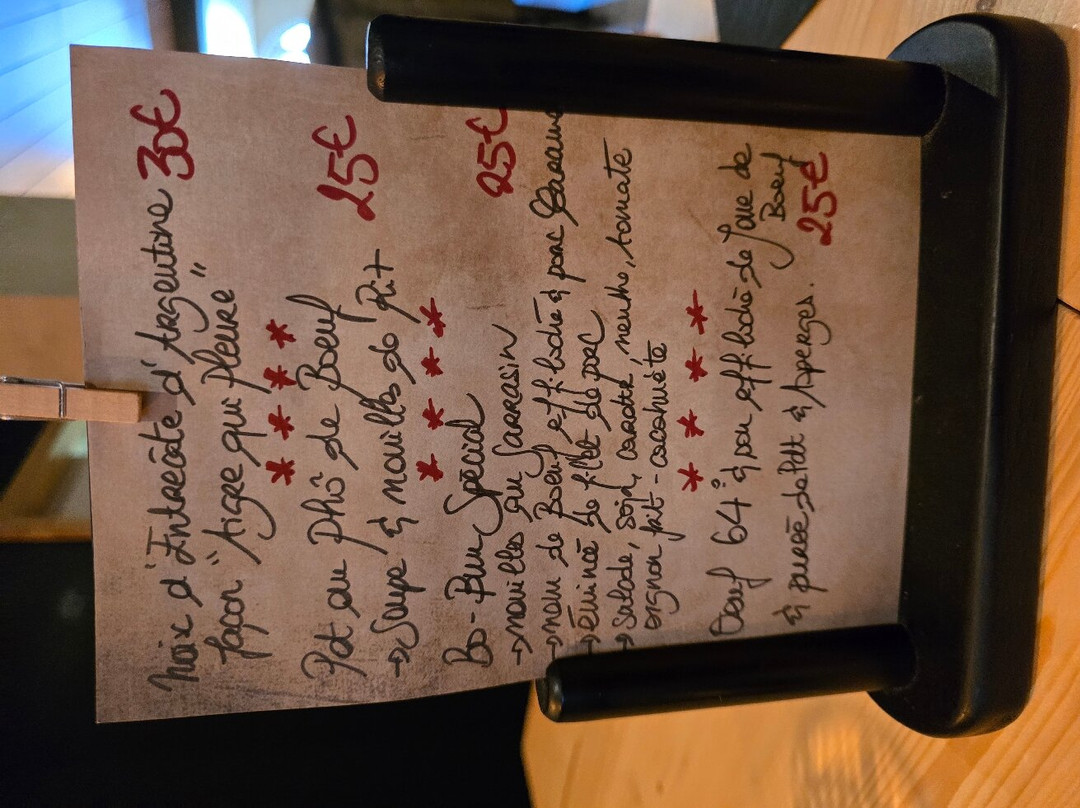 Noix d'Entrecôte d'Argentine 30€
façon "Tigre qui pleure"
* * * *
Pot au Phô de Boeuf 25€
→ Soupe & nouilles de Riz
* * * *
Bo-Bun Spécial 25€
→ nouilles au Sarrasin
→ nem de Boeuf effiloché & porc
→ émincé de filet de porc
→ Salade, soja, carotte, menthe, tomate
oignon frit - cacahuète
* * * *
Oeuf 64° & son effiloché de Joue de
Boeuf
& purée de & Asperges. 25€